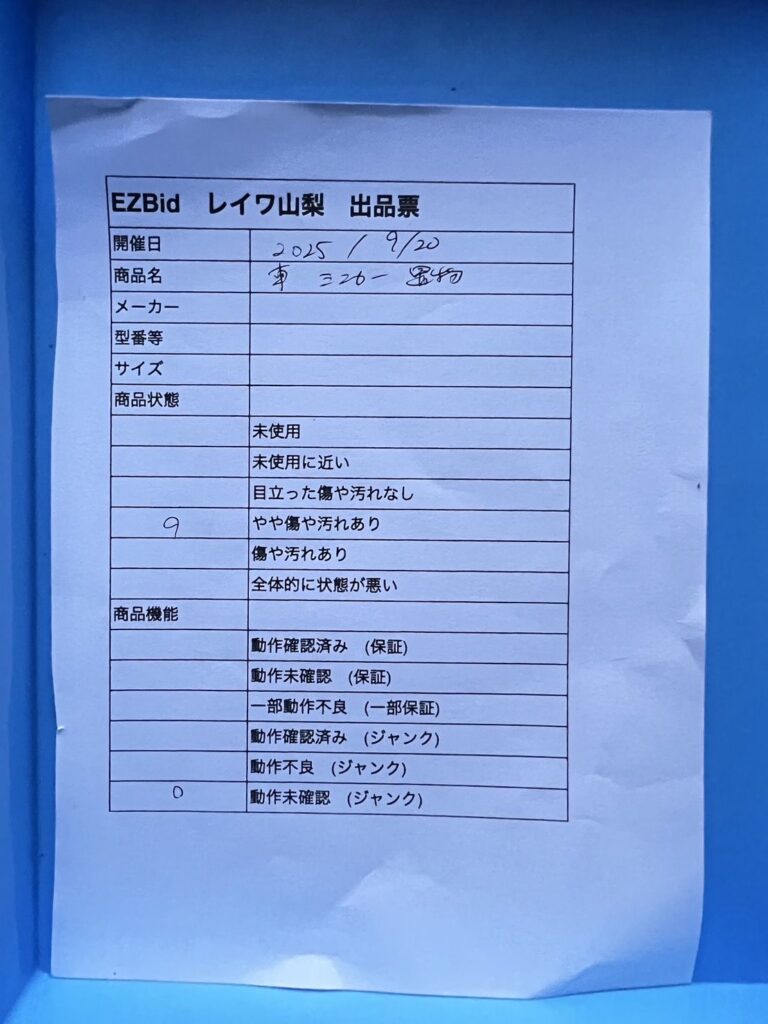 EZBid レイワ山梨 出品票
開催日 2025 / 9/20
商品名 車 ミニカー 置物
メーカー
型番等
サイズ
商品状態
未使用
未使用に近い
目立った傷や汚れなし
○ やや傷や汚れあり
傷や汚れあり
全体的に状態が悪い
商品機能
動作確認済み (保証)
動作未確認 (保証)
一部動作不良 (一部保証)
動作確認済み (ジャンク)
動作不良 (ジャンク)
○ 動作未確認 (ジャンク)